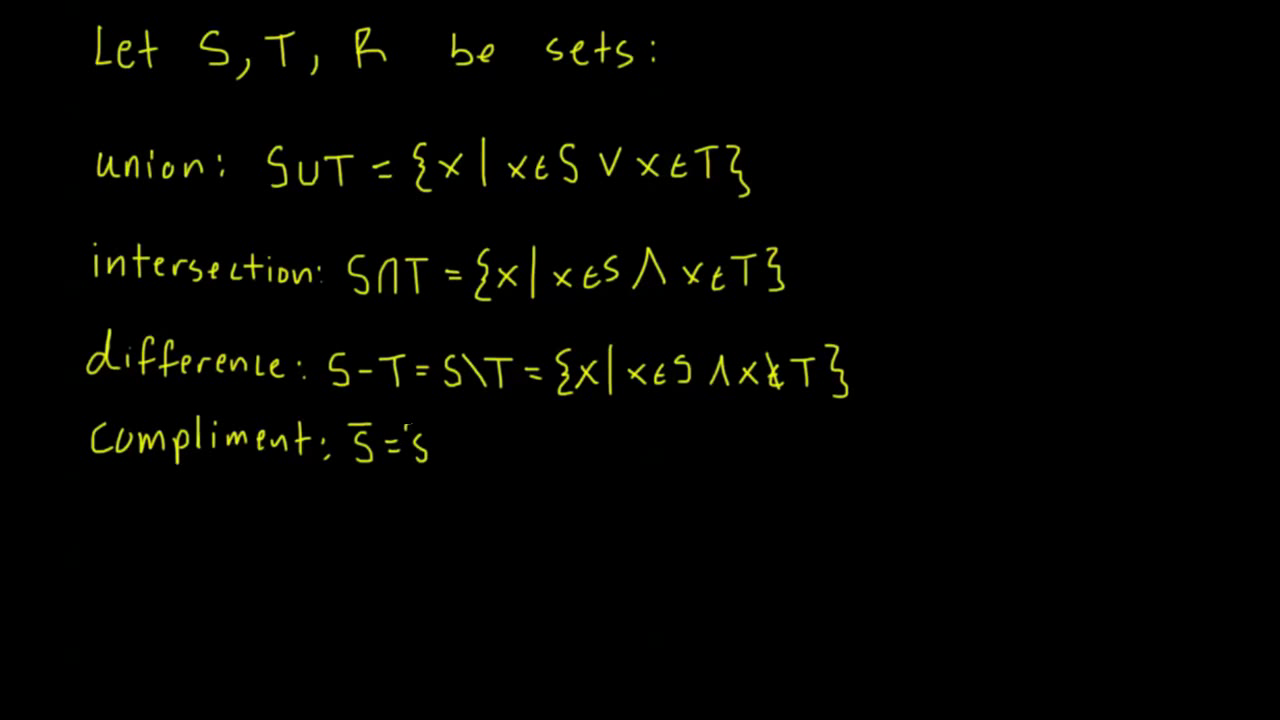 Let S, T, R be sets:
union: S∪T = {x | x∈S ∨ x∈T}
intersection: S∩T = {x | x∈S ∧ x∈T}
difference: S-T = S\T = {x | x∈S ∧ x∉T}
Compliment: S̅ = 's